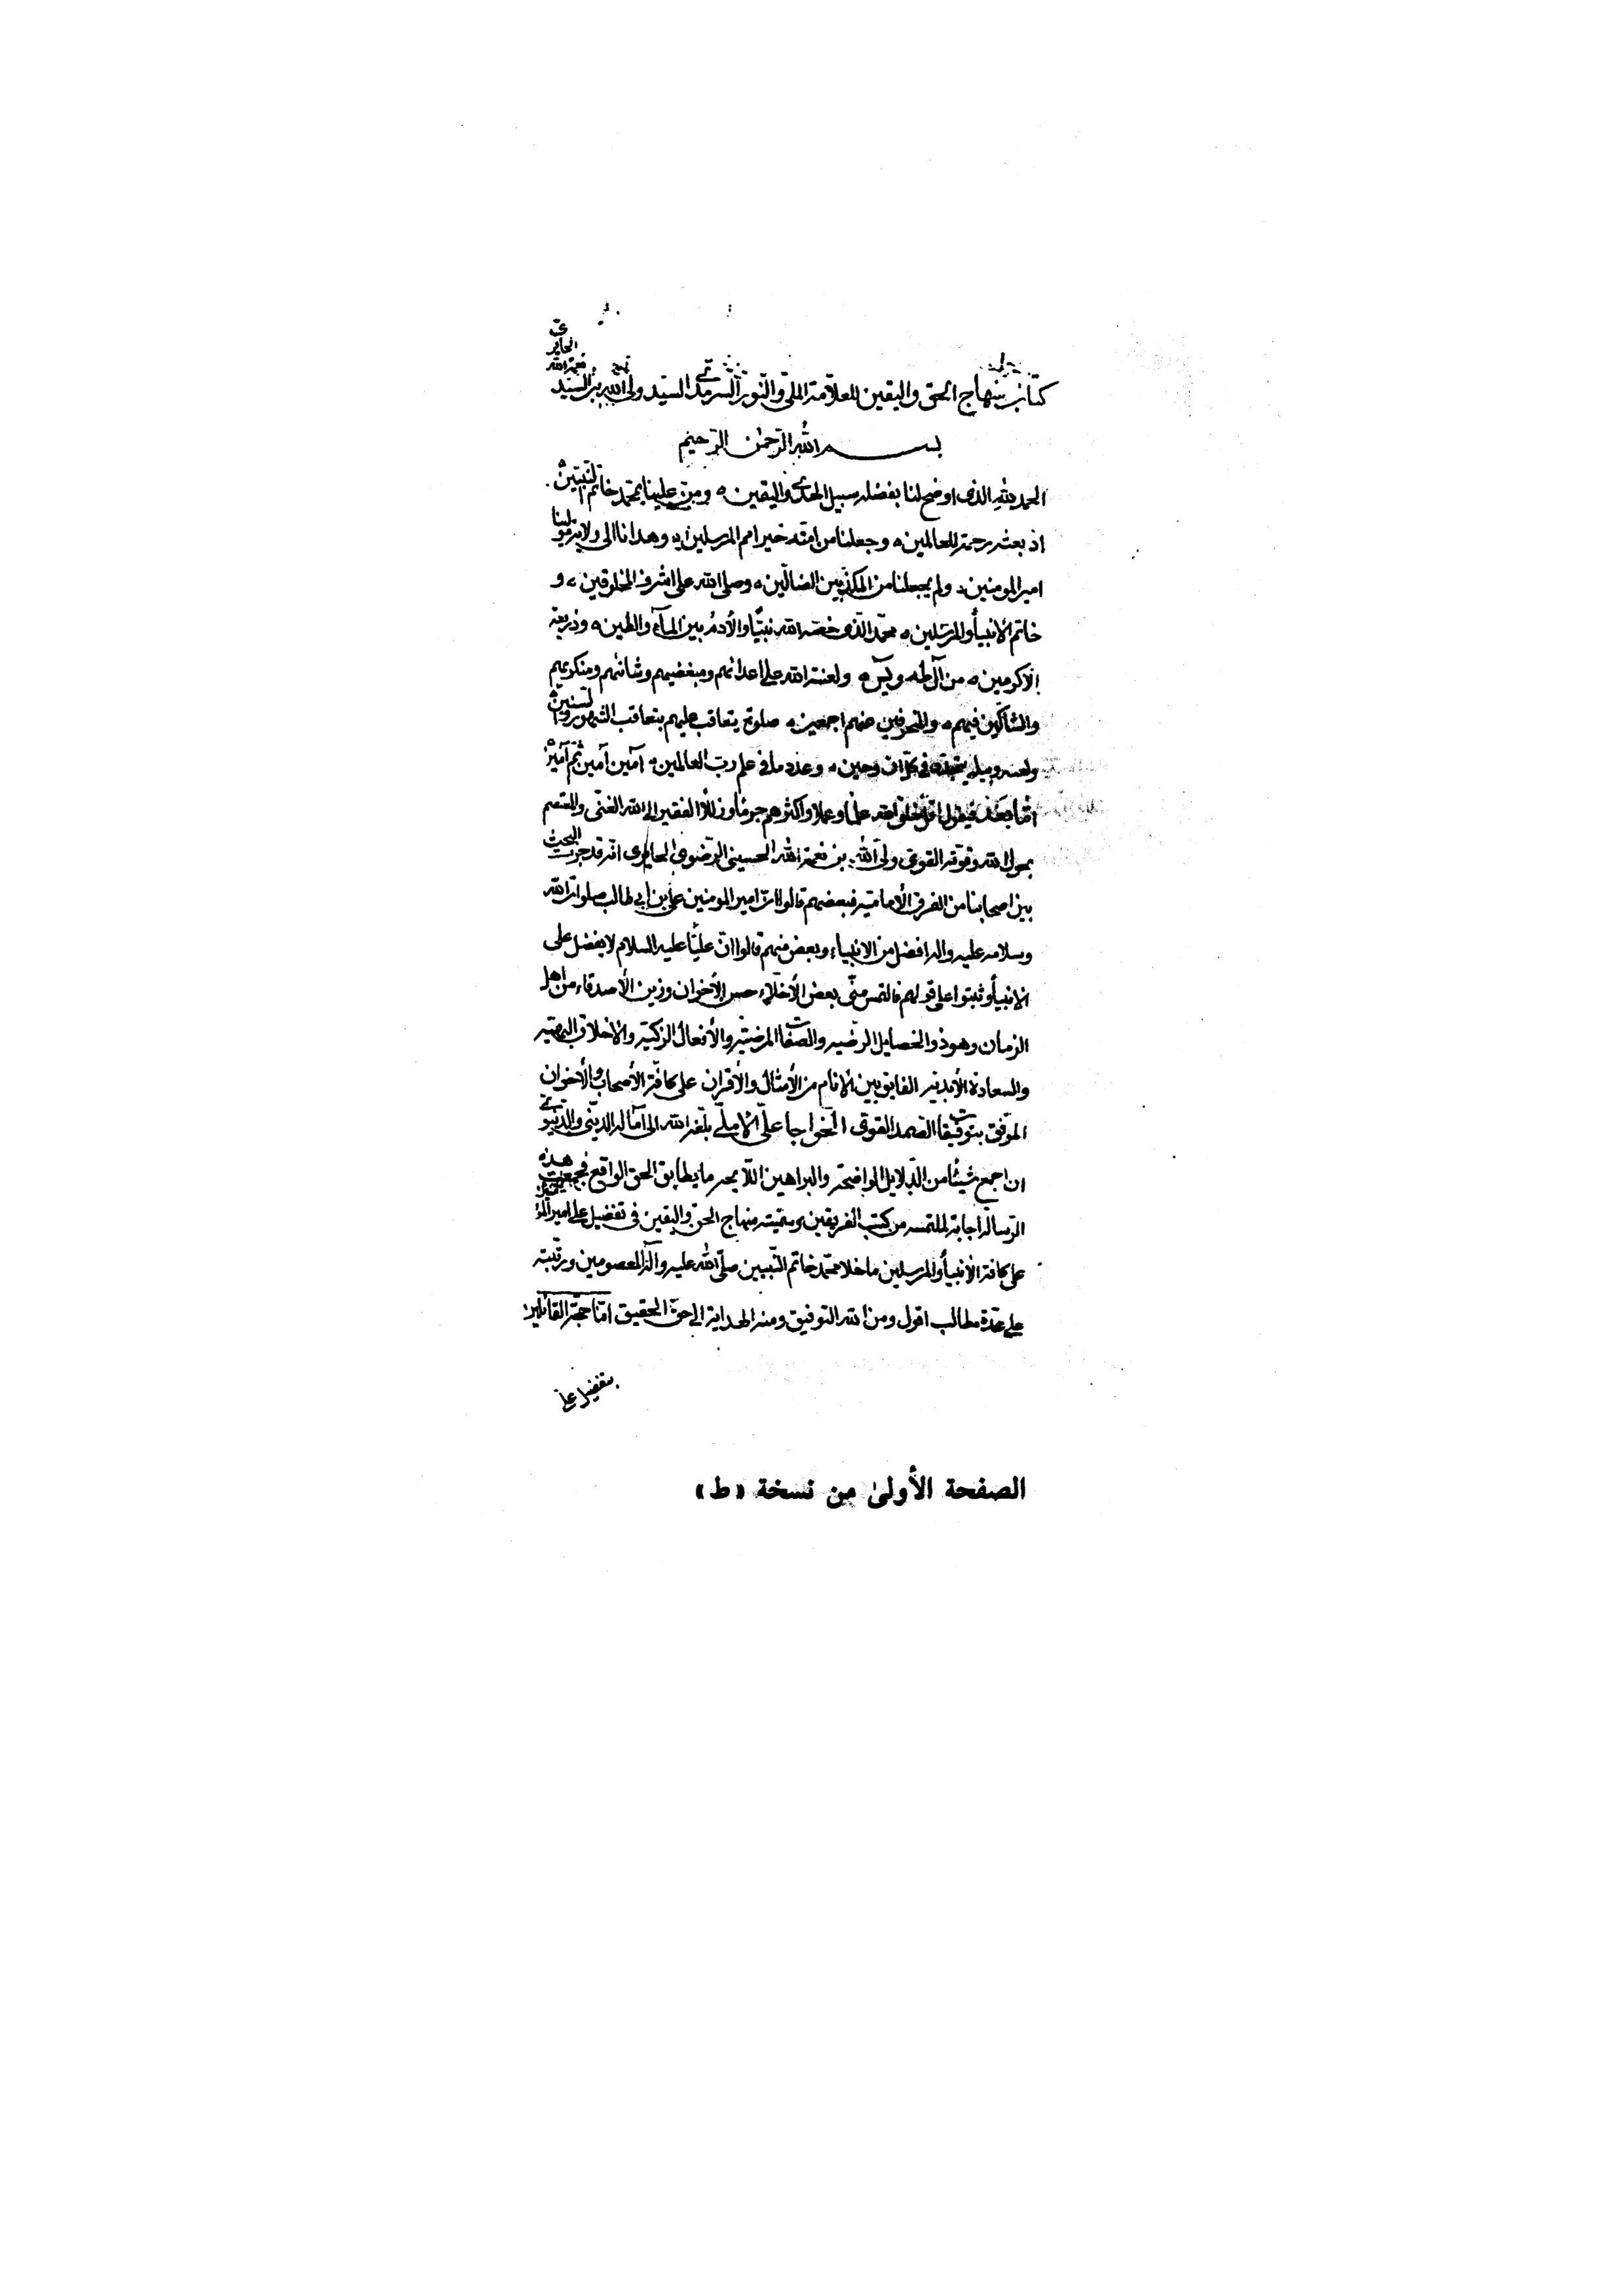 كتاب منهاج الحق واليقين للعلامة الملي والنور السرمدي السيد ولي الله بن السيد نعمة الله الحايري
بسم الله الرحمن الرحيم
الحمد لله الذي اوضح لنا بفضله سبيل الهدى واليقين ومن علينا بمحمد خاتم النبيين
اذ بعثه رحمة للعالمين وجعلنا من امته خير امم المرسلين وهدانا الى ولاية مولينا
امير المومنين ولم يجعلنا من المكذبين الضالين وصلى الله على اشرف المخلوقين و
خاتم الانبيأ والمرسلين محمد الذي خصه الله نبيّا والأدم بين المآء والطين وذريته
الاكرمين من آل طه ويس ولعنة الله على اعدائهم ومبغضيهم وشانئهم ومنكريهم
والشاكين فيهم والمنحرفين عنهم اجمعين صلوة يتعاقب عليهم بتعاقب الشهور والسنين
في كل ان وحين وعدد ما في علم رب العالمين آمين آمين ثم آمين
اما بعد فيقول اقل خلق الله علما وعملا واكثرهم جرما وزللا الفقير الى الله الغني والمعتصم
بحول الله وقوته القوي ولي الله بن نعمة الله الحسيني الرضوي الحايري انه قد جرت البحث
بين اصحابنا من الفرق الأمامية فبعضهم قالوا ان امير المومنين علي بن ابي طالب صلوات الله
وسلامه عليه واله افضل من الانبياء وبعض منهم قالوا ان عليّا عليه السلام لا يفضل على
الانبيأ وثبتوا على قولهم فالتمس منّي بعض الأخلاء حسن الأخوان وزين الأصدقاء من اهل
الزمان وهو ذو الخصايل الرضيه والصفات المرضيّه والأفعال الزكيّة والاخلاق البهيّه
والسعادة الأبدية الفايق بين الانام من الأمثال والأقران على كافة الأصحاب والأخوان
الموفق بتوفيقات الصمد القوي الخواجا علي الاملي بلّغه الله الى آماله الديني والدنيوي
ان اجمع شيئا من الدلايل الواضحة والبراهين اللايحه ما يطابق الحق الواقع فجمعت هذه
الرسالة اجابة لملتمسه من كتب الفريقين وسميته منهاج الحق واليقين في تفضيل علي امير المؤمنين
على كافة الأنبيأ والمرسلين ما خلا محمد خاتم النبيين صلى الله عليه وآله المعصومين ورتبته
على عدة مطالب اقول ومن الله التوفيق ومنه الهداية الى حق الحقيق امّا حجّة القائلين
بتفضيل علي
الصفحة الأولىٰ من نسخة «ط»